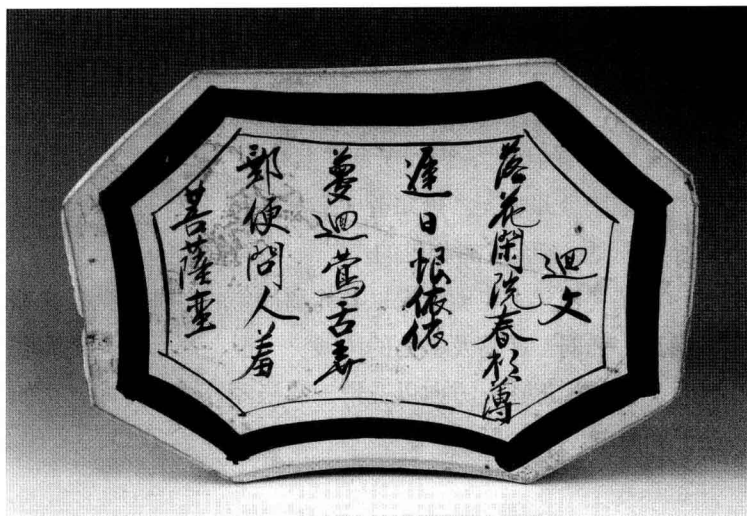 迴文
落花閑院春衫薄
遲日恨依依
夢迴鶯舌弄
郵便問人羞
菩薩蛮